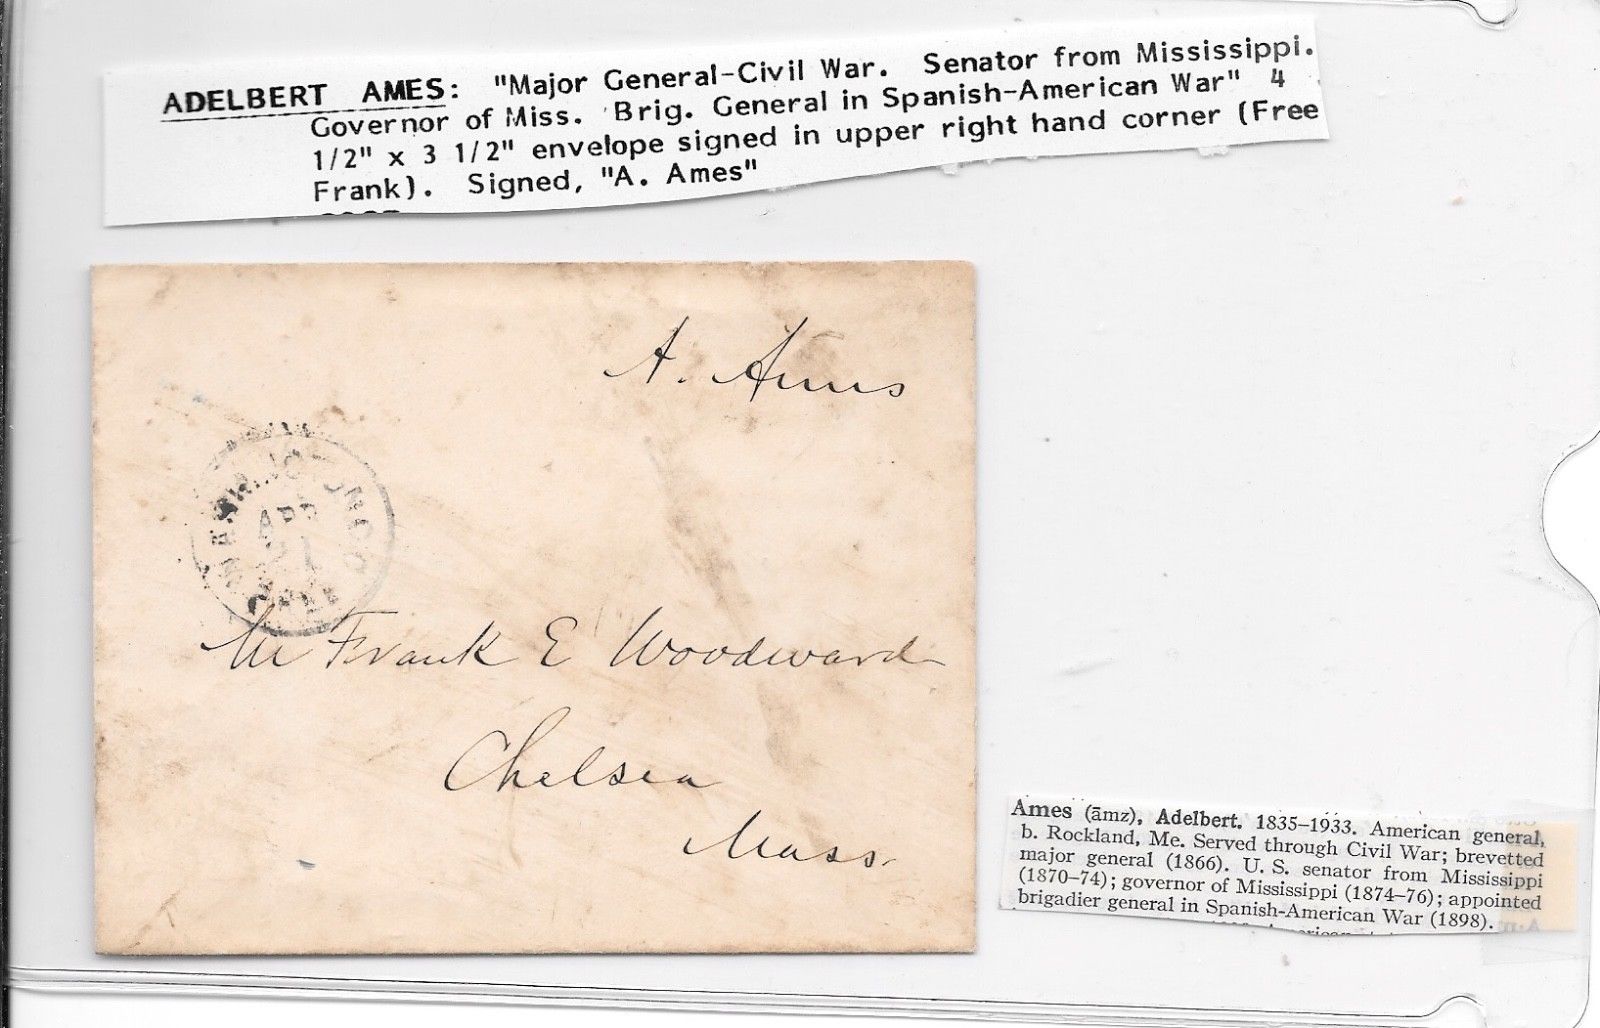 ADELBERT AMES: "Major General-Civil War. Senator from Mississippi.
Governor of Miss. Brig. General in Spanish-American War" 4
1/2" x 3 1/2" envelope signed in upper right hand corner (Free
Frank). Signed, "A. Ames"
A. Ames
WASHINGTON D.C.
APR
21
FREE
Mr Frank E Woodward
Chelsea
Mass.
Ames (āmz), Adelbert. 1835–1933. American general,
b. Rockland, Me. Served through Civil War; brevetted
major general (1866). U. S. senator from Mississippi
(1870–74); governor of Mississippi (1874–76); appointed
brigadier general in Spanish-American War (1898).